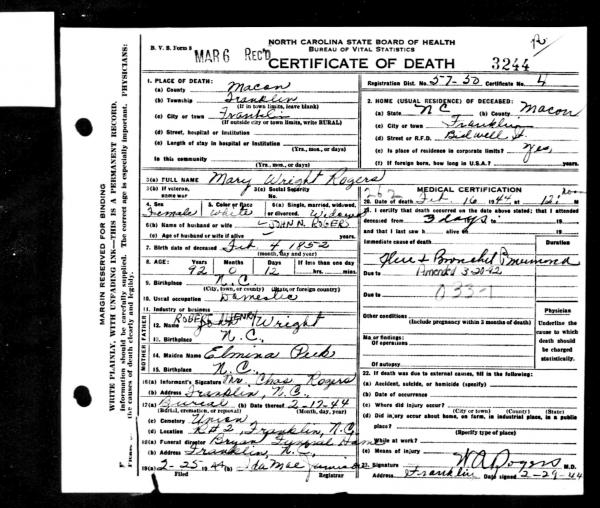 NORTH CAROLINA STATE BOARD OF HEALTH
BUREAU OF VITAL STATISTICS
B. V. S. Form 8
MAR 6 REC'D
CERTIFICATE OF DEATH
3244
Registration Dist. No. 57-50 Certificate No. 4
MARGIN RESERVED FOR BINDING
WRITE PLAINLY, WITH UNFADING INK—THIS IS A PERMANENT RECORD.
information should be carefully supplied. The correct age is especially important. PHYSICIANS:
the causes of death clearly and legibly.
1. PLACE OF DEATH:
(a) County Macon
(b) Township Franklin
(If in town limits, leave blank)
(c) City or town Franklin
(If outside city or town limits, write RURAL)
(d) Street, hospital or institution
(e) Length of stay in hospital or institution
(Yrs., mos., or days)
In this community
(Yrs., mos., or days)
2. HOME (USUAL RESIDENCE) OF DECEASED:
(a) State N C (b) County Macon
(c) City or town Franklin
(d) Street or R.F.D. Bidwell St.
(e) Is place of residence in corporate limits? Yes
(f) If foreign born, how long in U.S.A.? years
3(a) FULL NAME Mary Wright Rogers
3(b) If veteran, name war
3(c) Social Security No.
4. Sex Female
5. Color or Race White
6(a) Single, married, widowed, or divorced. Widowed
6(b) Name of husband or wife JOHN N. ROGERS
6(c) Age of husband or wife if alive years
7. Birth date of deceased Feb 4 1852
(month, day and year)
8. AGE: Years 92 Months 0 Days 12 If less than one day
hrs. min.
9. Birthplace N.C.
(City, town, or county) (State, or foreign country)
10. Usual occupation Domestic
11. Industry or business
ROBERT HENRY
FATHER
12. Name John Wright
13. Birthplace N.C.
MOTHER
14. Maiden Name Elmina Peek
15. Birthplace N.C.
16(a) Informant's Signature Mrs. Chas Rogers
(b) Address Franklin, N.C.
17(a) Burial (b) Date thereof 2-17-44
(Burial, cremation, or removal) (Month, day, year)
(c) Cemetery Union
(d) Location R#2 Franklin, N.C.
18(a) Funeral director Bryant Funeral Home
(b) Address Franklin, N.C.
19(a) 2-25 1944 (b) Ida Mae
Filed Registrar
MEDICAL CERTIFICATION
20. Date of death Feb. 16 1944 at 12: noon
21. I certify that death occurred on the date above stated; that I attended
deceased from 3 days
and that I last saw h alive on
Immediate cause of death Duration
Flu & Bronchial Pneumonia
Due to Amended 3-20-92
Due to 033-1
Other conditions
(Include pregnancy within 3 months of death)
Major findings:
Of operations
Of autopsy
Physician
Underline the cause to which death should be charged statistically.
22. If death was due to external causes, fill in the following:
(a) Accident, suicide, or homicide (specify)
(b) Date of occurrence
(c) Where did injury occur?
(City or town) (County) (State)
(d) Did injury occur about home, on farm, in industrial place, in a public
place?
(Specify type of place)
While at work?
(e) Means of injury
23. Signature W A Rogers M.D.
Address Franklin Date signed 2-29-44